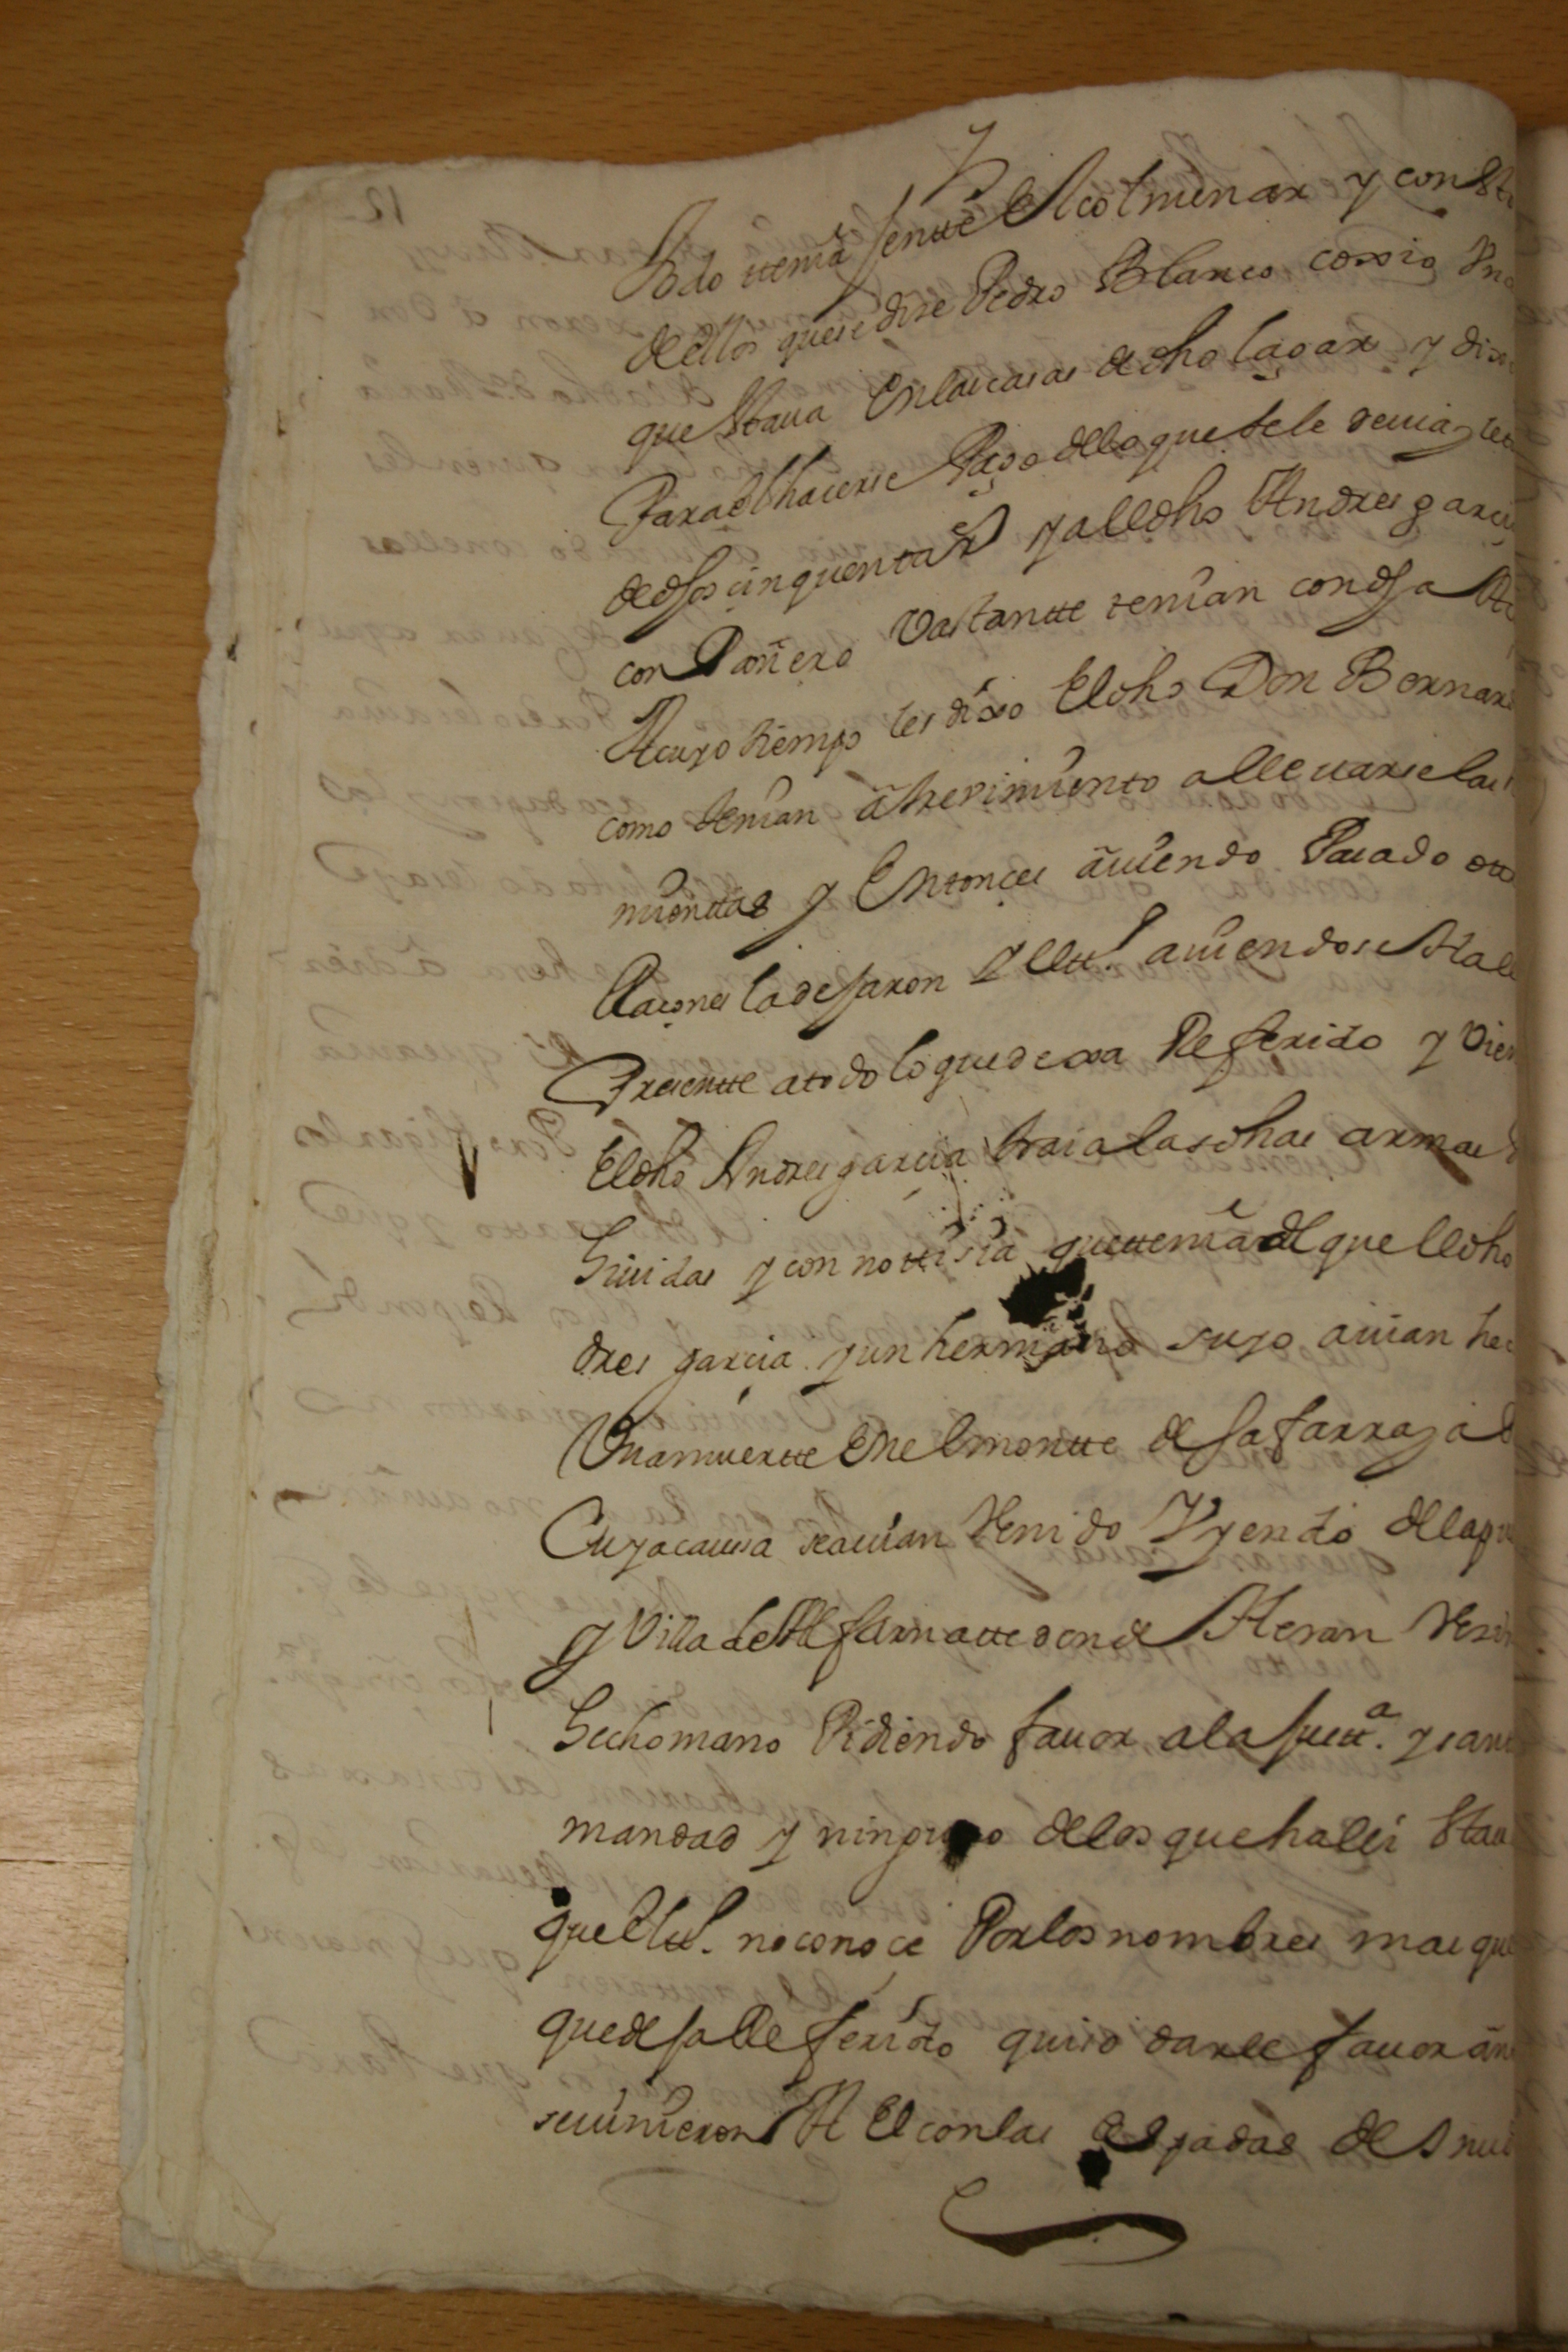 todo ttenia jentte El colmenar y con Sto
de ellos que se dise Pedro Blanco coxio Vna
que Staua En las casas de dho lagar y dixo
Para el hacerse Pago de lo que se le deuia
de dhos cinquenta Rs y al dho Andres garcia
con Pañero Vastantte tenian con dha
A cuyo tiempo les dixo El dho Don Bernar
como tenian atrerimiento a lleuarse las
mienttas y Entonces auiendo Pasado ott
Raçones la dejaron y el ttº auiendose Hall
Presentte a todo lo que dexa Referido y Vien
El dho Andres garcia traia las dhas armas
hiuidas y con nottisia que ttenia de que el dho
dres garcia y un hermano suyo auian hec
Vna muertte En el montte de Safarraya
Cuya causa se auian Venido Vyendo de la
y Villa de Alfarnatte donde Heran Vesin
hecho mano Pidiendo fauor a la justtª. y
mandad y ninguno de los que halli Stau
que el ttº. no conoce Por los nombres mas que
que deja Referido quiso darle fauor an
se uinieron A El con las espadas desnu